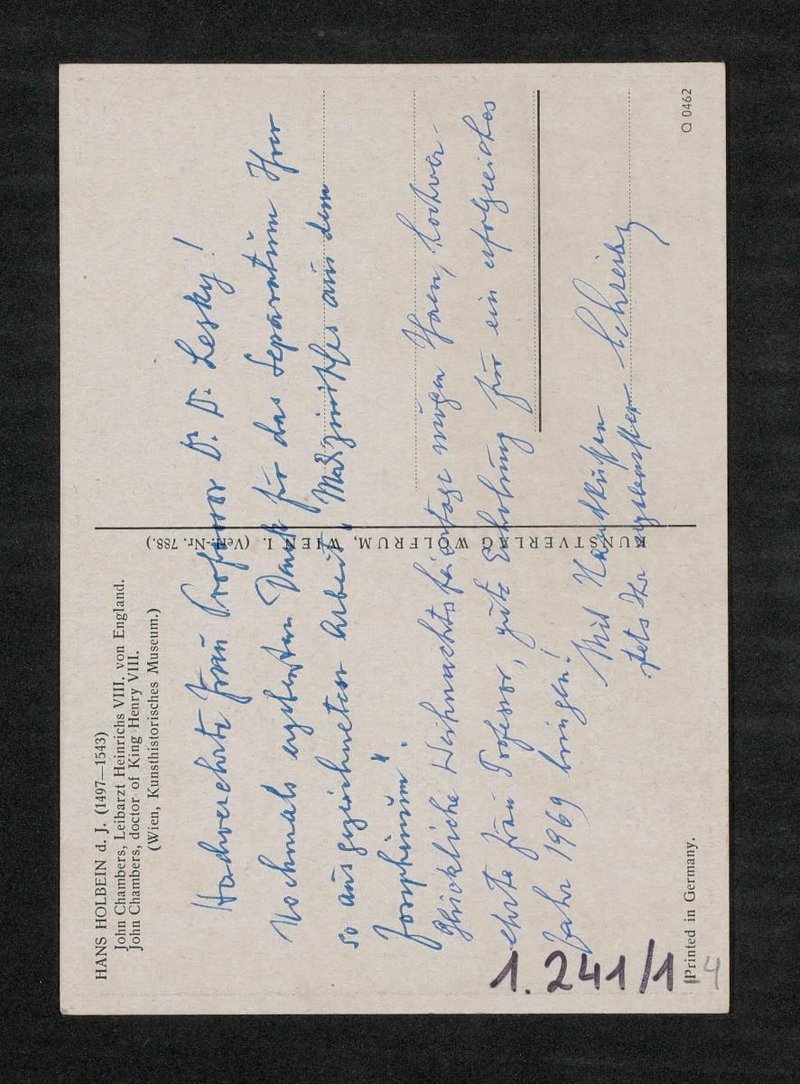 HANS HOLBEIN d. J. (1497—1543)
John Chambers, Leibarzt Heinrichs VIII. von England.
John Chambers, doctor of King Henry VIII.
(Wien, Kunsthistorisches Museum.)
Hochverehrte Frau Professor Dr. Dr. Lesky!
Nochmals ergebensten Dank für das Separatum Ihrer
so ausgezeichneten Arbeit „Medizinisches aus dem
Josephinum".
Glückliche Weihnachtsfeiertage mögen Ihnen, hochver-
ehrte Frau Professor, gute Erholung für ein erfolgreiches
Jahr 1969 bringen!
Mit Handküssen
stets Ihr ergebenster Schreiber
KUNSTVERLAG WOLFRUM, WIEN I. (Verl.-Nr. 788.)
Printed in Germany.
Q 0462
1.241/1
4